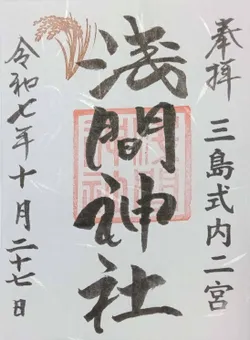 奉拝
三島式内二宮
浅間神社
令和七年十月二十七日